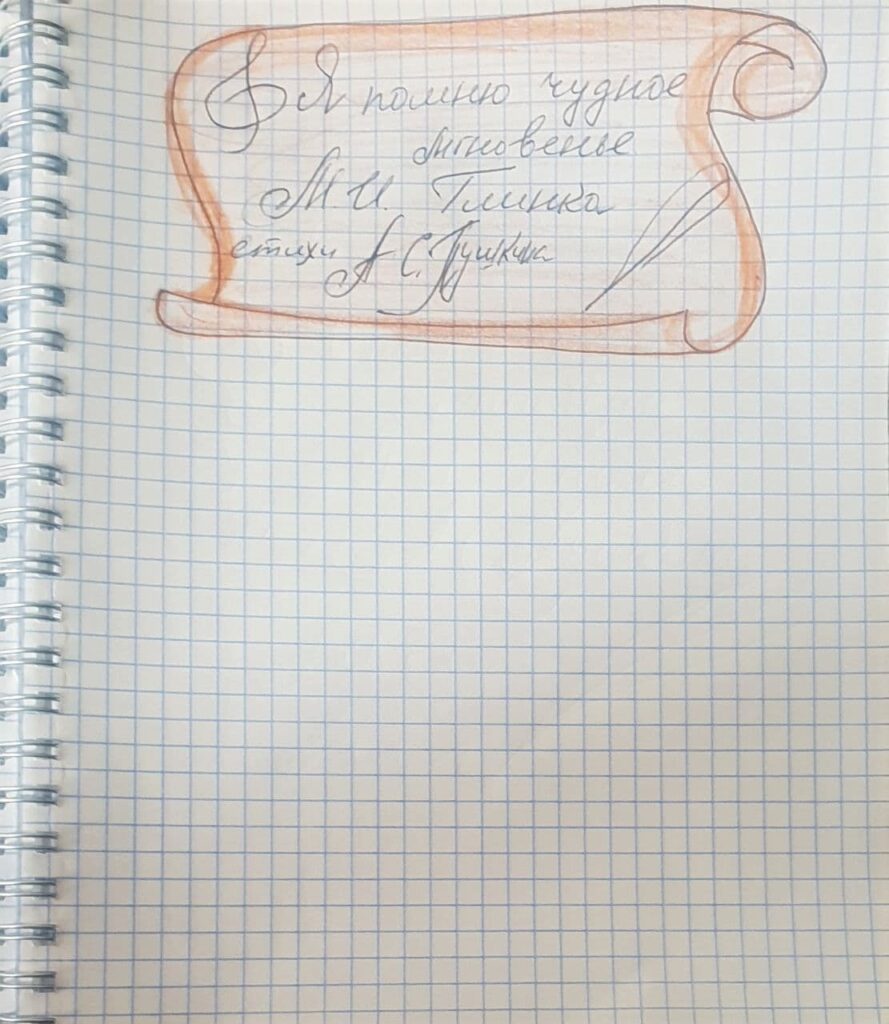 Я помню чудное
мгновенье
М. И. Глинка
стихи А. С. Пушкина